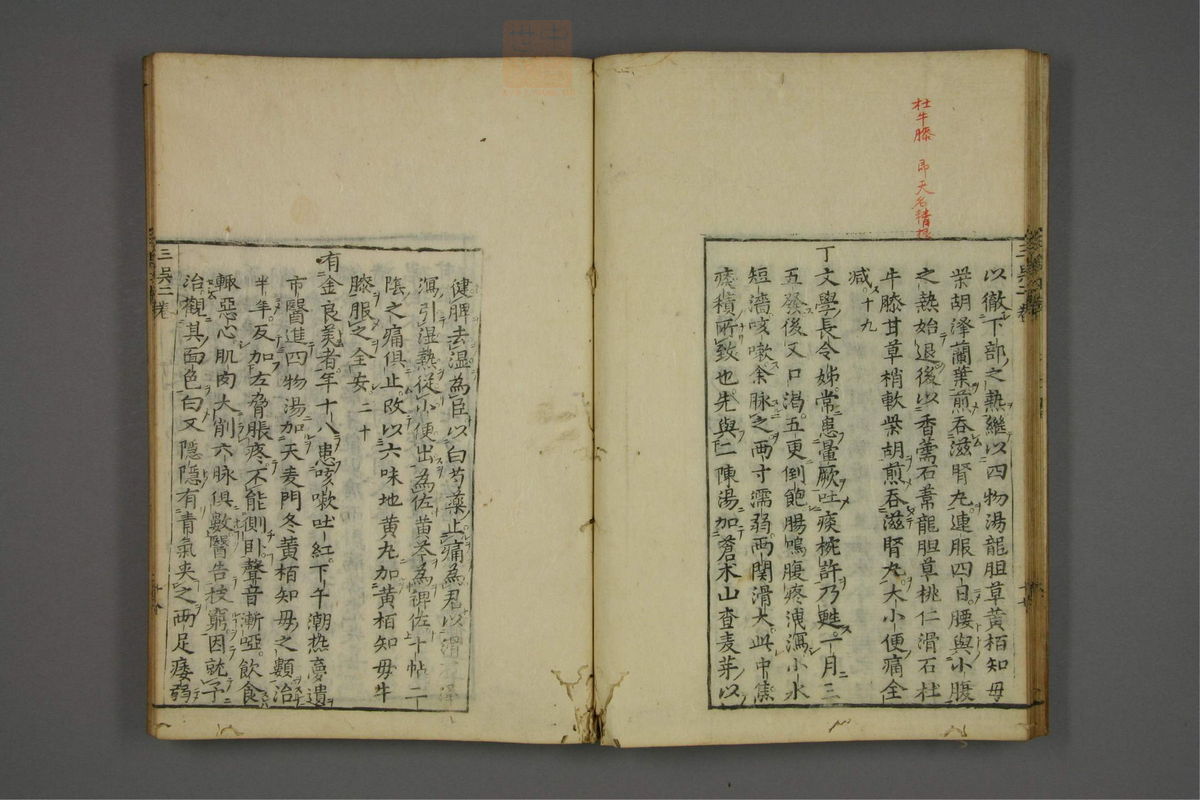 杜牛膝 即天名精根
以徹下部之熱継以四物湯龍胆草黄栢知毋
柴胡澤蘭葉煎吞滋腎丸連服四日腰與小腹
之熱始退後以香薷石葦龍胆草桃仁滑石杜
牛膝甘草梢軟柴胡煎吞滋腎丸大小便痛全
减 十九
丁文學長令姊常患暈厥吐痰椀許乃甦一月三
五發後又口渇五更倒飽腸鳴腹疼洩瀉小水
短濇咳嗽余脉之两寸濡弱两関滑大此中焦
痰積所致也先與二陳湯加蒼术山查麦芽以
健脾去湿為臣以白芍藥止痛為君以滑石澤
瀉引湿熱従小便出為佐黄芩為裨佐十帖二
陰之痛俱止改以六味地黄丸加黄栢知毋牛
膝服之全安 二十
有金良美者年十八患咳嗽吐紅下午潮热夢遺
市醫進四物湯加天麦門冬黄栢知毋之類治
半年反加左脅脹疼不能側卧聲音漸啞飲食
輙惡心肌肉大削六脉俱數醫告技窮因就予
治觀其面色白又隠隠有青氣夾之两足痿弱
三吳二卷